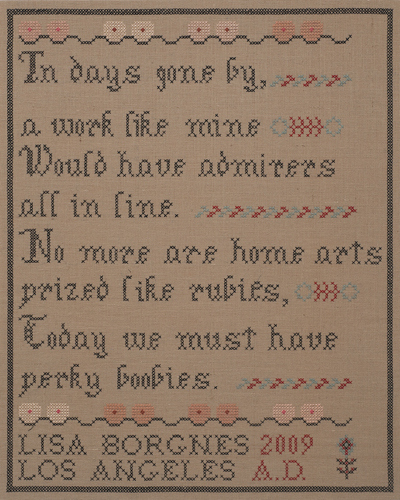 In days gone by,
a work like mine
Would have admirers
all in line.
No more are home arts
prized like rubies,
Today we must have
perky boobies.
LISA BORGNES 2009
LOS ANGELES A.D.